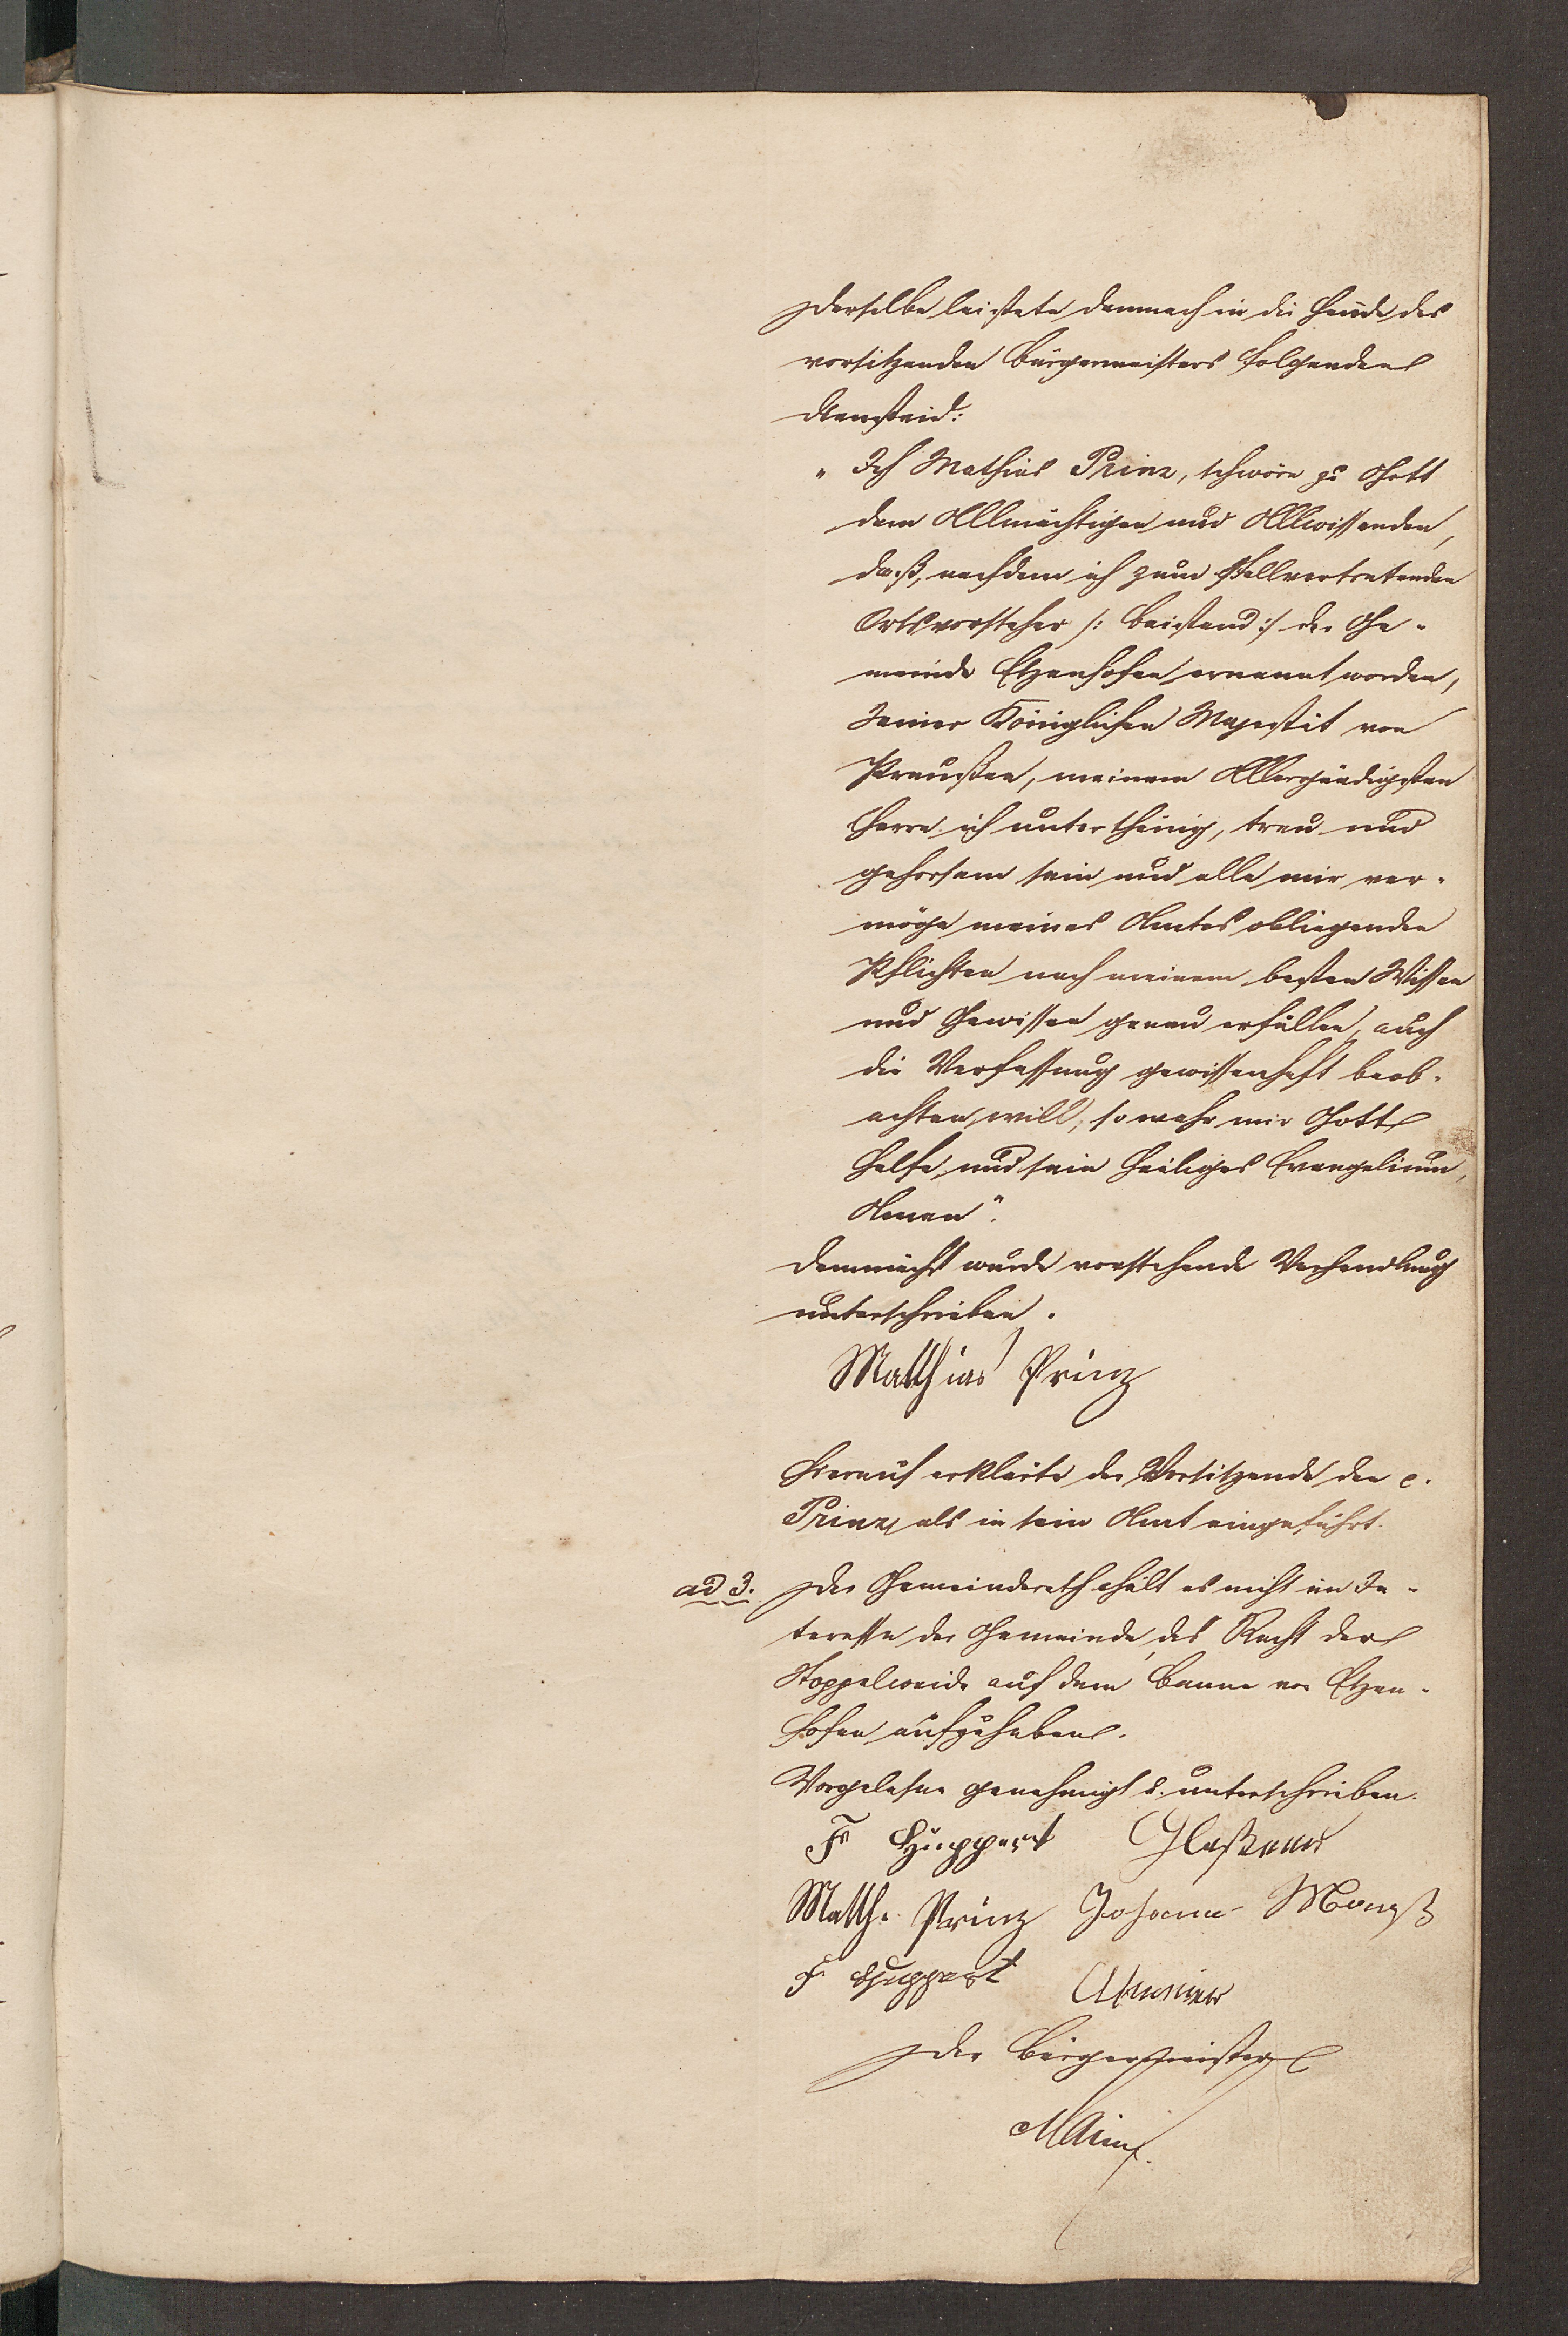 Derselbe leistete demnach in die Hände des
vorsitzenden Bürgermeisters folgenden
Diensteid:
„Ich Mathias Prinz, schwöre zu Gott
dem Allmächtigen und Allwissenden,
daß, nachdem ich zum stellvertretenden
Ortsvorsteher /: Beistand :/ der Ge-
meinde Etzenhofen ernannt worden,
Seiner Königlichen Majestät von
Preußen, meinem Allergnädigsten
Herrn ich unterthänig, treu und
gehorsam sein und alle mir ver-
möge meines Amtes obliegenden
Pflichten nach meinem besten Wissen
und Gewissen genau erfüllen, auch
die Verfassung gewissenhaft beob-
achten will, so wahr mir Gott
helfe und sein heiliges Evangelium,
Amen".
Demnächst wurde vorstehende Verhandlung
unterschrieben.
Matthias Prinz
Hierauf erklärte der Vorsitzende den p.
Prinz als in sein Amt eingeführt.
ad 3. Der Gemeinderath hält es nicht im In-
teresse der Gemeinde, das Recht der
Stoppelweide auf dem Banne von Etzen-
hofen aufzuheben.
Vorgelesen genehmigt u. unterschrieben.
Fr Huppert
Matth. Prinz Johann
F Huppert
Der Bürgermeister